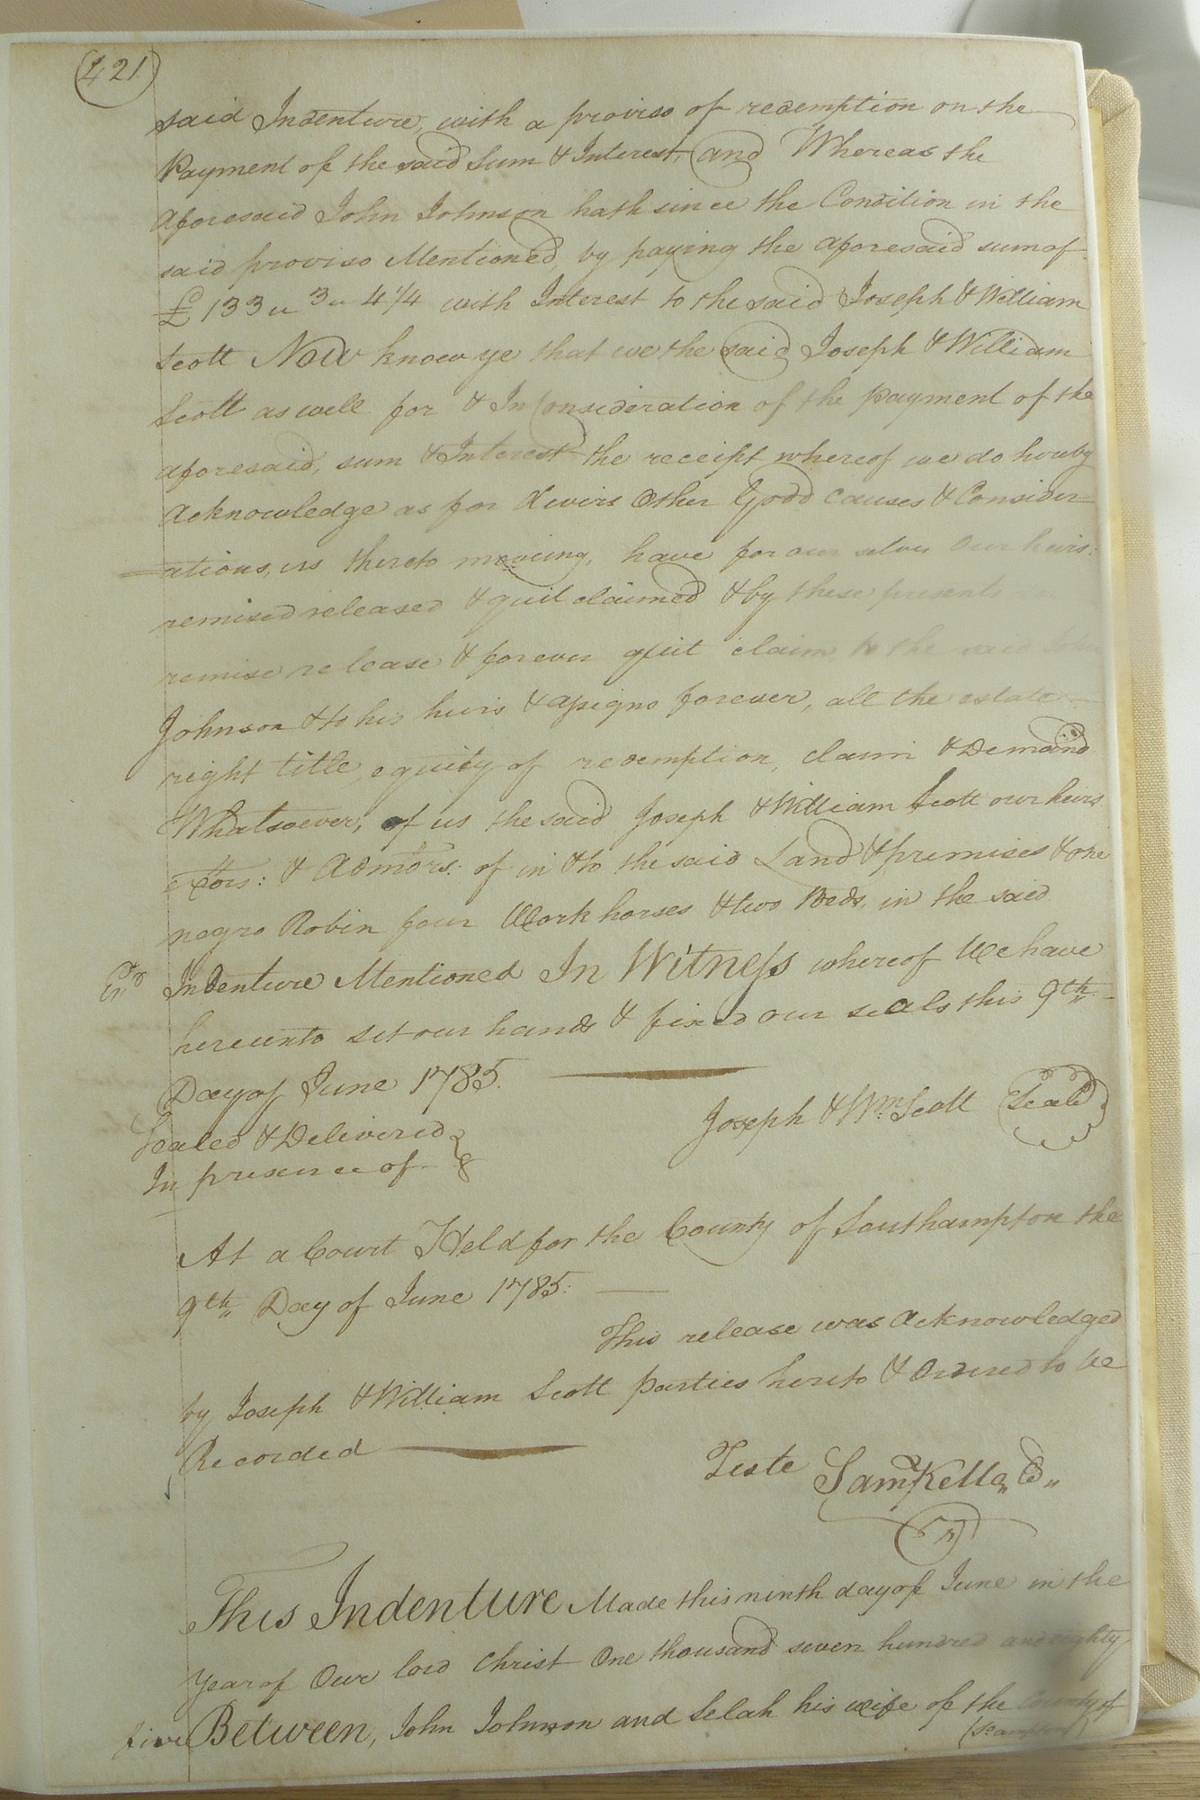 421
said Indenture, with a proviso of redemption on the
Payment of the said Sum & Interest, and Whereas the
aforesaid John Johnson hath since the Condition in the
said proviso Mentioned, by paying the aforesaid sum of
£133 " 3 " 4 1/4 with Interest to the said Joseph & William
Scott Now know ye that we the said Joseph & William
Scott as well for & In Consideration of the payment of the
aforesaid, sum & Interest the receipt whereof we do hereby
Acknowledge as for divirs Other Good causes & Consider=
=ations, us thereto moveing, have for our selves Our heirs:
remised released & quit claimed & by these presents
remise release & forever quit claim to the said John
Johnson & to his heirs & assigns forever, all the estate
right title, equity of redemption, claim & Demand
Whatsoever, of us the said Joseph & William Scott our heirs
Extors: & Admors: of in & to the said Land & premises & one
negro Robin four Work horses & two Beds, in the said
Ex.d Indenture Mentioned In Witness whereof We have
hereunto set our hands & fixed our seals this 9th
Day of June 1785.
Joseph & Wm. Scott Seal
Sealed & Delivered
In presence of
At a Court Held for the County of Southampton the
9th Day of June 1785.
This release was Acknowledged
by Joseph & William Scott parties hereto & Ordered to be
Recorded
Teste Saml Kello, C"
This Indenture Made this ninth day of June in the
Year of Our lord Christ One thousand seven hundred and eighty
five Between, John Johnson and Selah his wife of the County of